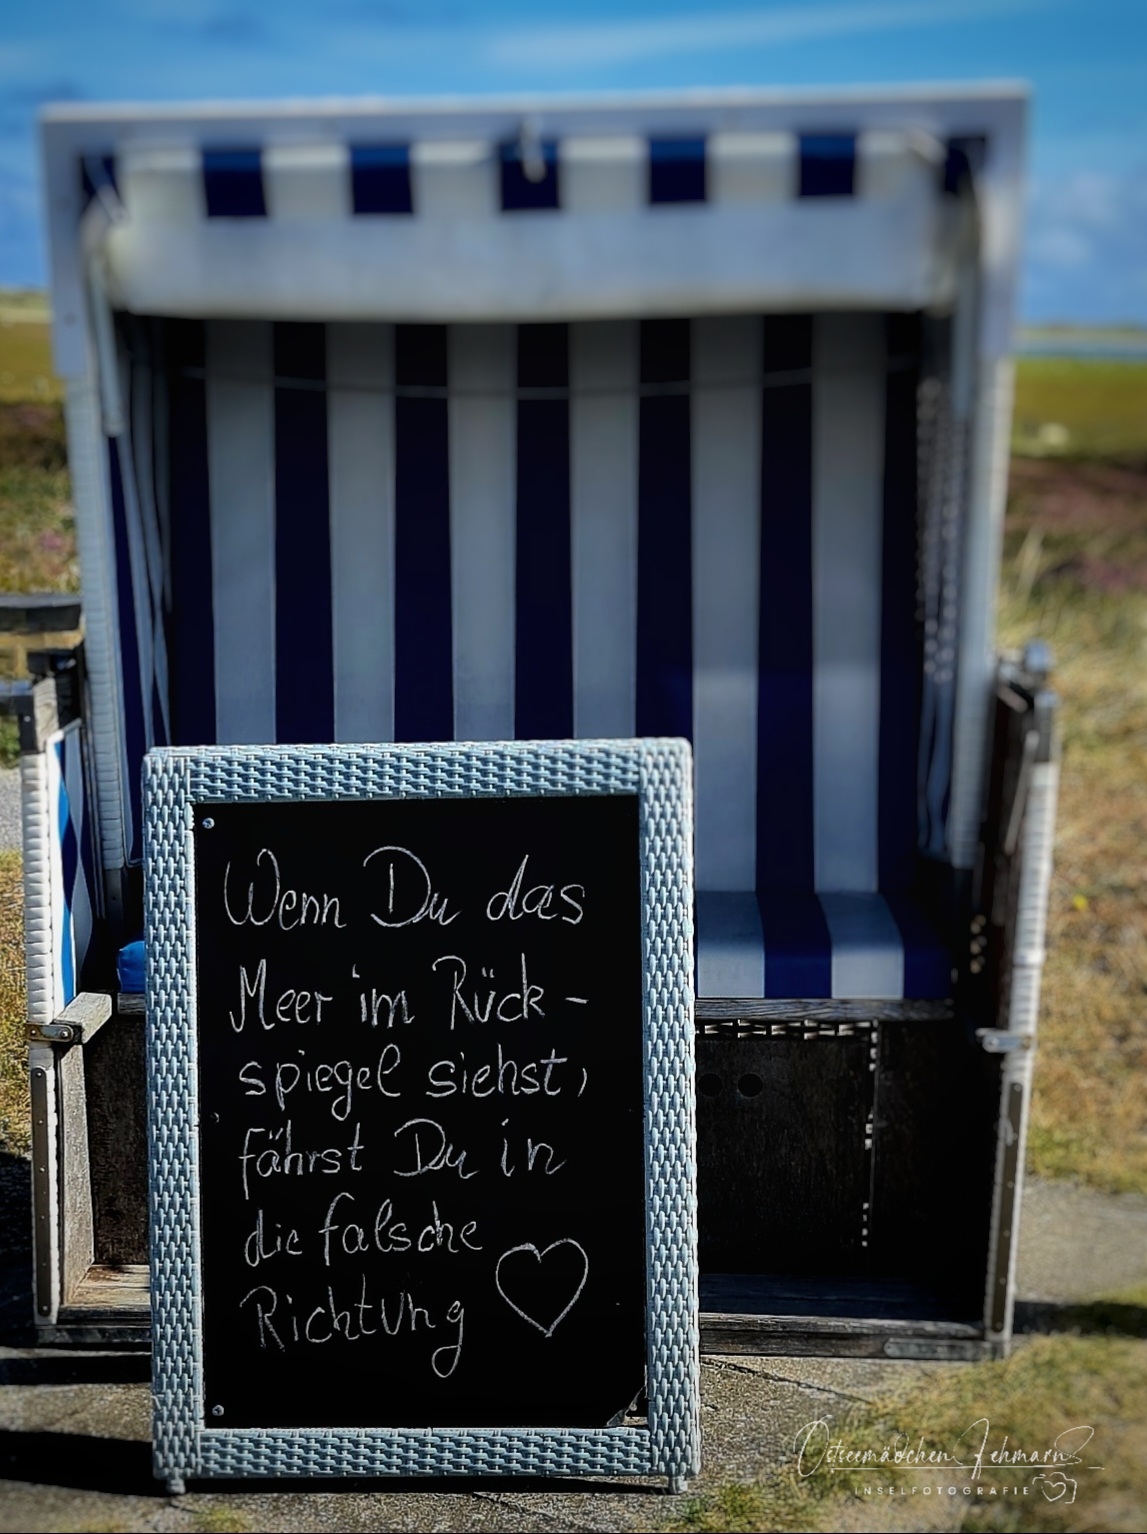 Wenn Du das
Meer im Rück-
spiegel siehst,
fährst Du in
die falsche
Richtung
Ostseemädchen Fehmarn
INSELFOTOGRAFIE